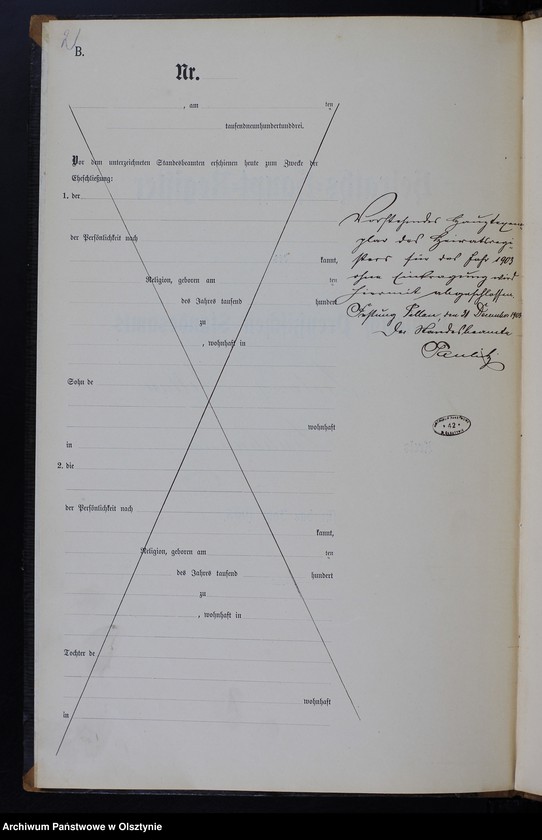 2
B.
Nr.
, am ten
tausendneunhundertunddrei.
Vor dem unterzeichneten Standesbeamten erschienen heute zum Zwecke der
Eheschließung:
1. der
der Persönlichkeit nach
kannt,
Religion, geboren am ten
des Jahres tausend hundert
zu
, wohnhaft in
Sohn de
wohnhaft
in
2. die
der Persönlichkeit nach
kannt,
Religion, geboren am ten
des Jahres tausend hundert
zu
, wohnhaft in
Tochter de
wohnhaft
in
Vorstehendes Hauptexem-
plar des Heiratsregi-
sters für das Jahr 1903
ohne Eintragung wird
hiermit abgeschlossen.
Festung , den 31 December 1903
Der Standesbeamte
42
Archiwum Państwowe w Olsztynie